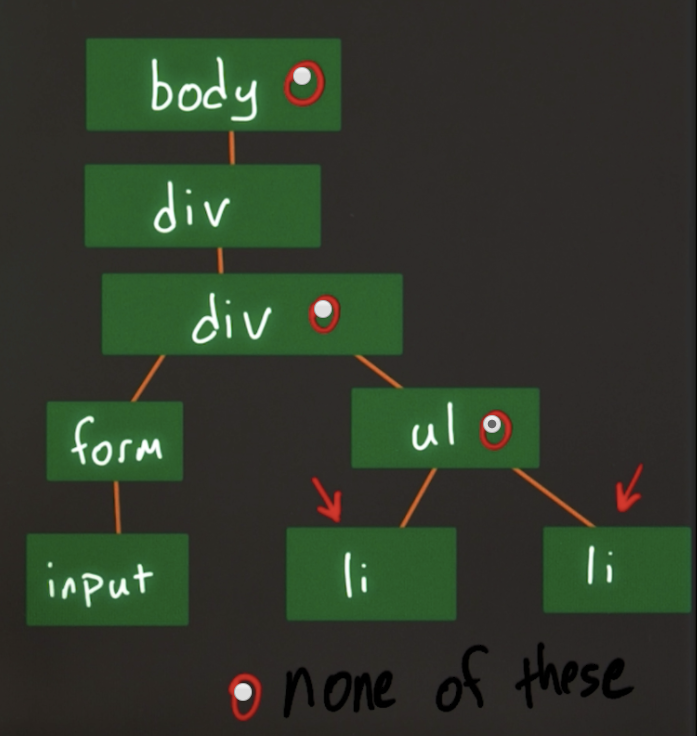 body
div
div
form
ul
input
li
li
none of these